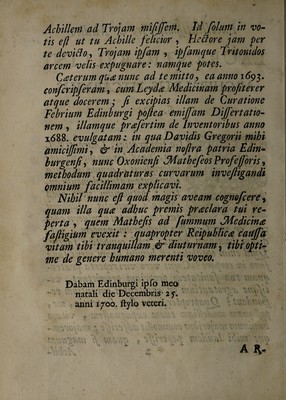 Achillem ad Trojam misissem. Id solum in vo-
tis est ut tu Achille felicior, Hectore jam per
te devicto, Trojam ipsam, ipsamque Tritonidos
arcem velis expugnare: namque potes.
Cæterum quæ nunc ad te mitto, ea anno 1693.
conscripseram, cum Leydæ Medicinam profiterer
atque docerem; si excipias illam de Curatione
Febrium Edinburgi postea emissam Dissertatio-
nem, illamque præsertim de Inventoribus anno
1688. evulgatam: in qua Davidis Gregorii mihi
amicissimi, & in Academia nostra patria Edin-
burgensi, nunc Oxoniensi Matheseos Professoris,
methodum quadraturas curvarum investigandi
omnium facillimam explicavi.
Nihil nunc est quod magis aveam cognoscere,
quam illa quæ adhuc premis præclara tui re-
perta, quem Mathesis ad summum Medicinæ
fastigium evexit: quapropter Reipublicæ caussa
vitam tibi tranquillam & diuturnam, tibi opti-
me de genere humano merenti voveo.
Dabam Edinburgi ipso meo
natali die Decembris 25.
anni 1700. stylo veteri.
A R-